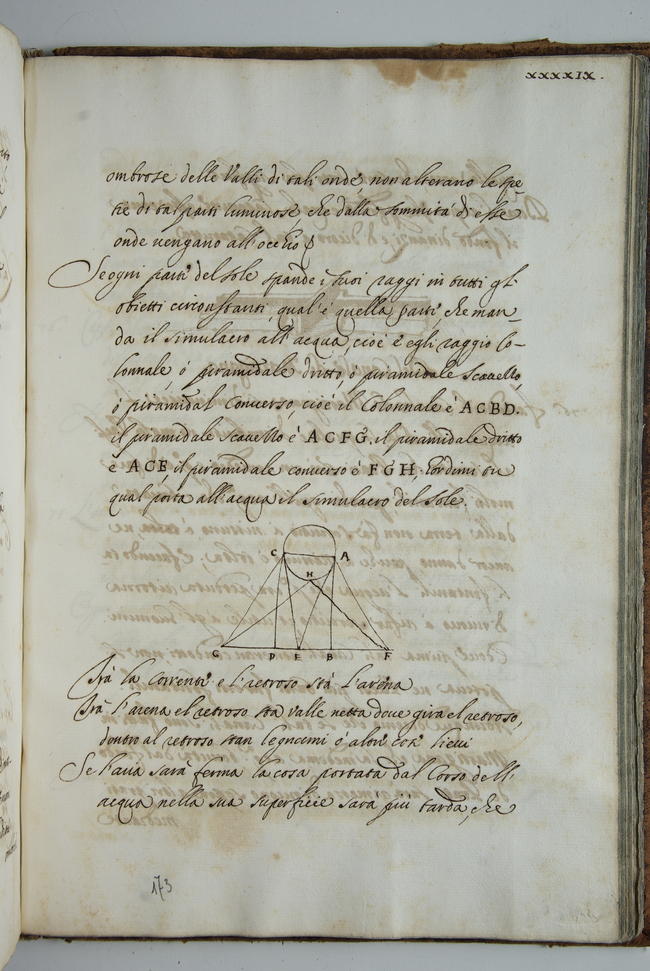 XXXXIX.
ombrose delle Valli di tali onde, non alterano le spe
tie di tal parti luminose, che dalla sommità di esse
onde vengano all'occhio
Se ogni parte del sole spande i suoi raggi in tutti gl'
obietti circonstanti, qual'è quella parte, che man
da il simulacro all'acqua, cioè è egli raggio Co-
lonnale, ó piramidale dritto, ó piramidale scavello,
ó piramidal Converso, cioè il Colonnale è ACBD.
il piramidale scavello è ACFG. il piramidale dritto
è ACE, il piramidale converso è FGH,
qual porta all'acqua il simulacro del sole.
C A
H
G D E B F
Trà la Corrente e l'retroso stà l'arena
Trà l'arena el retroso sta valle netta dove gira el retroso,
dentro al retroso stan legnami ó altri cose lievi
Se l'aria sarà ferma la cosa portata dal Corso dell'
acqua nella sua superficie sarà più tarda, che
173